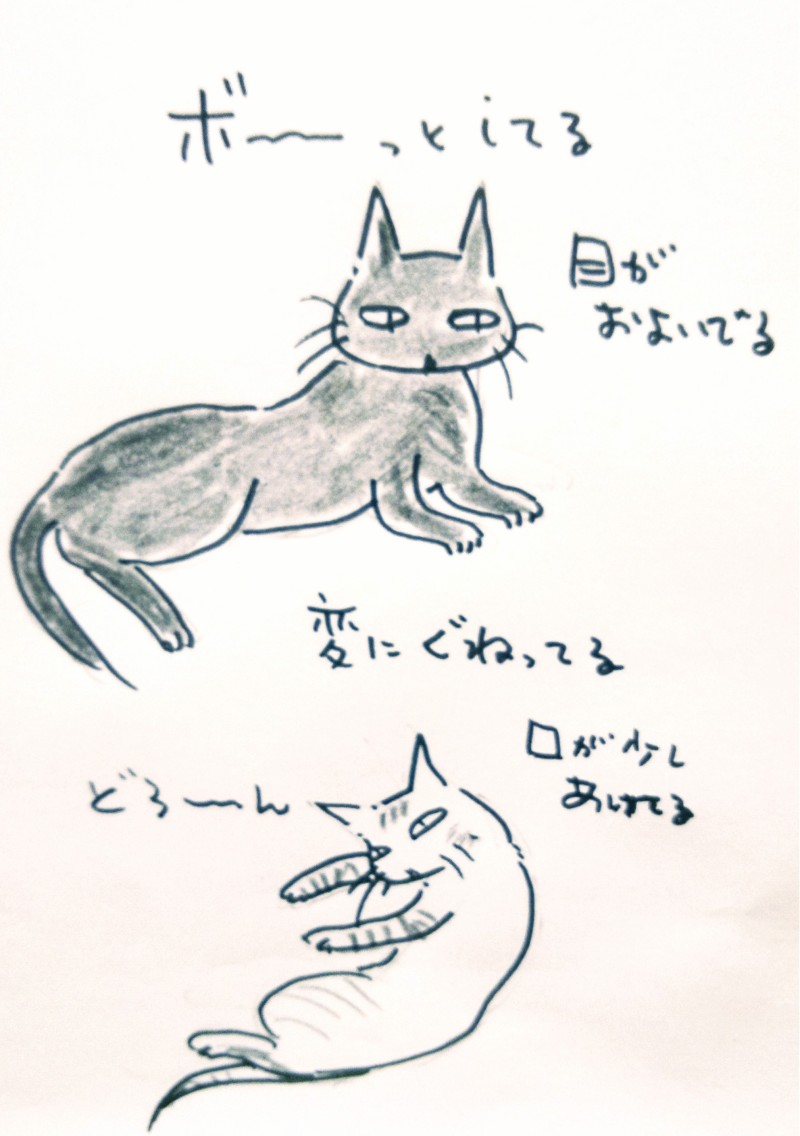 ボーーっとしてる
目が
およいでる
変にぐねってる
口が少し
あいてる
どろーーん